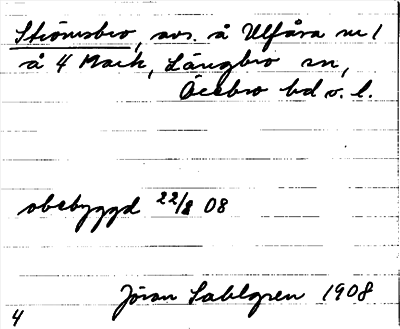 Strömsbro, avs. å Ulfåsa nr 1
å 4 Mark, Längbro sn,
Örebro hd o. l.
obebyggd 22/8 08
Jöran Sahlgren 1908
4